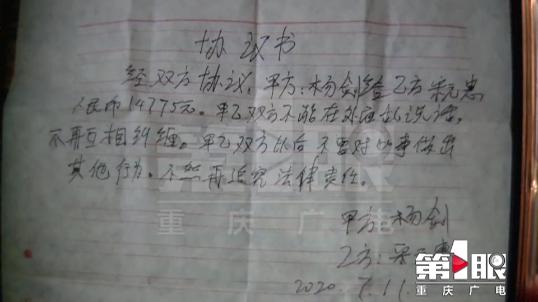 协议书
经双方协议,甲方:杨剑给乙方宋元惠
人民币14775元。甲乙双方不能在外面乱说话,
不再互相纠缠。甲乙双方以后不要对此事做出
其他行为。不然再追究法律责任。
甲方:杨剑
乙方:宋
2020.7.11
第1眼
重庆广电
第1眼
重庆广电